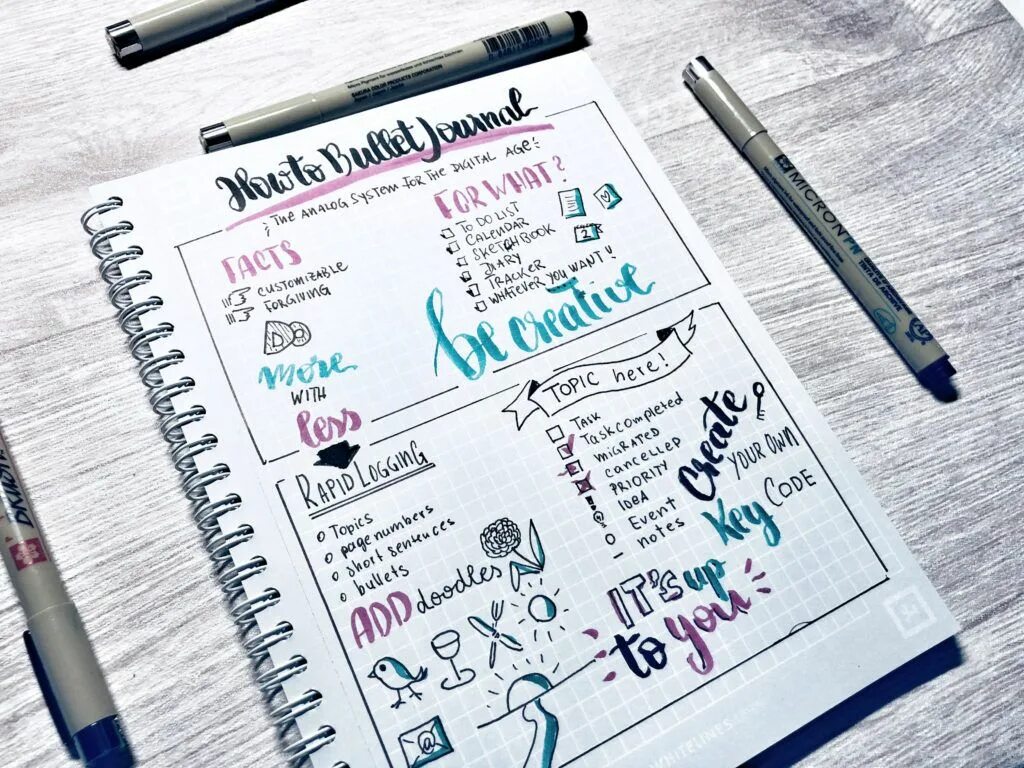 How to Bullet Journal
THE ANALOG SYSTEM FOR THE DIGITAL AGE
FACTS
CUSTOMIZABLE
FORGIVING
more
WITH
less
FOR WHAT?
TO DO LIST
CALENDAR
SKETCHBOOK
DIARY
TRACKER
WHATEVER YOU WANT!
2
be creative
RAPID LOGGING
Topics
page numbers
short sentences
bullets
ADD doodles
@
TOPIC here!
Task
Task completed
MIGRATED
cancelled
PRIORITY
IDEA
Event
notes
Create
YOUR OWN
Key CODE
IT'S up
to you
WHITELINES
SAKURA COLOR PRODUCTS CORPORATION
MICRON PN